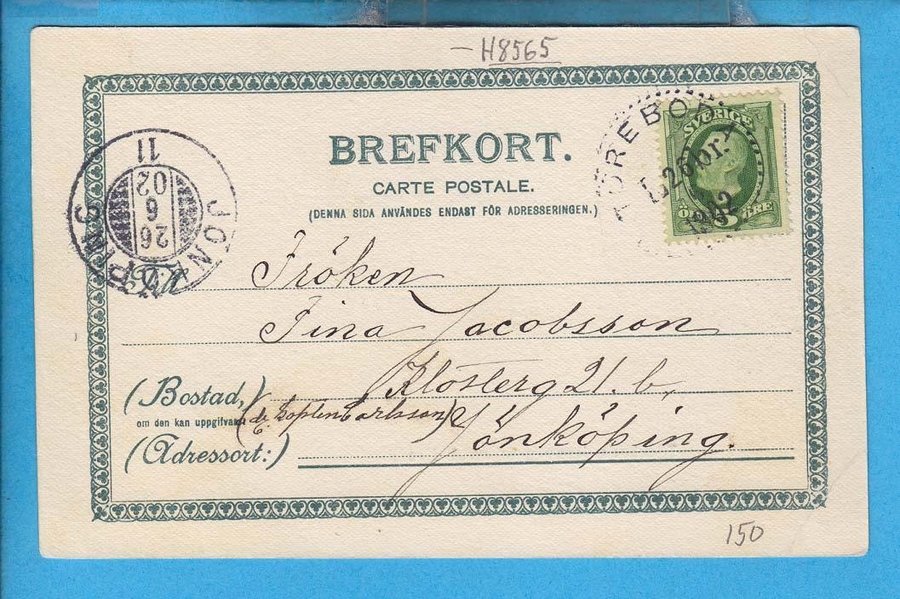 H8565
BREFKORT.
CARTE POSTALE.
(DENNA SIDA ANVÄNDES ENDAST FÖR ADRESSERINGEN.)
SVERIGE
5 ÖRE
TÖREBODA
26
JÖNKÖPING
26 6 02
11
Till
Fröken
Fina Jacobsson
Klosterg 21. b.
(Bostad,)
om den kan uppgifvas.
Jönköping.
(Adressort:)
150